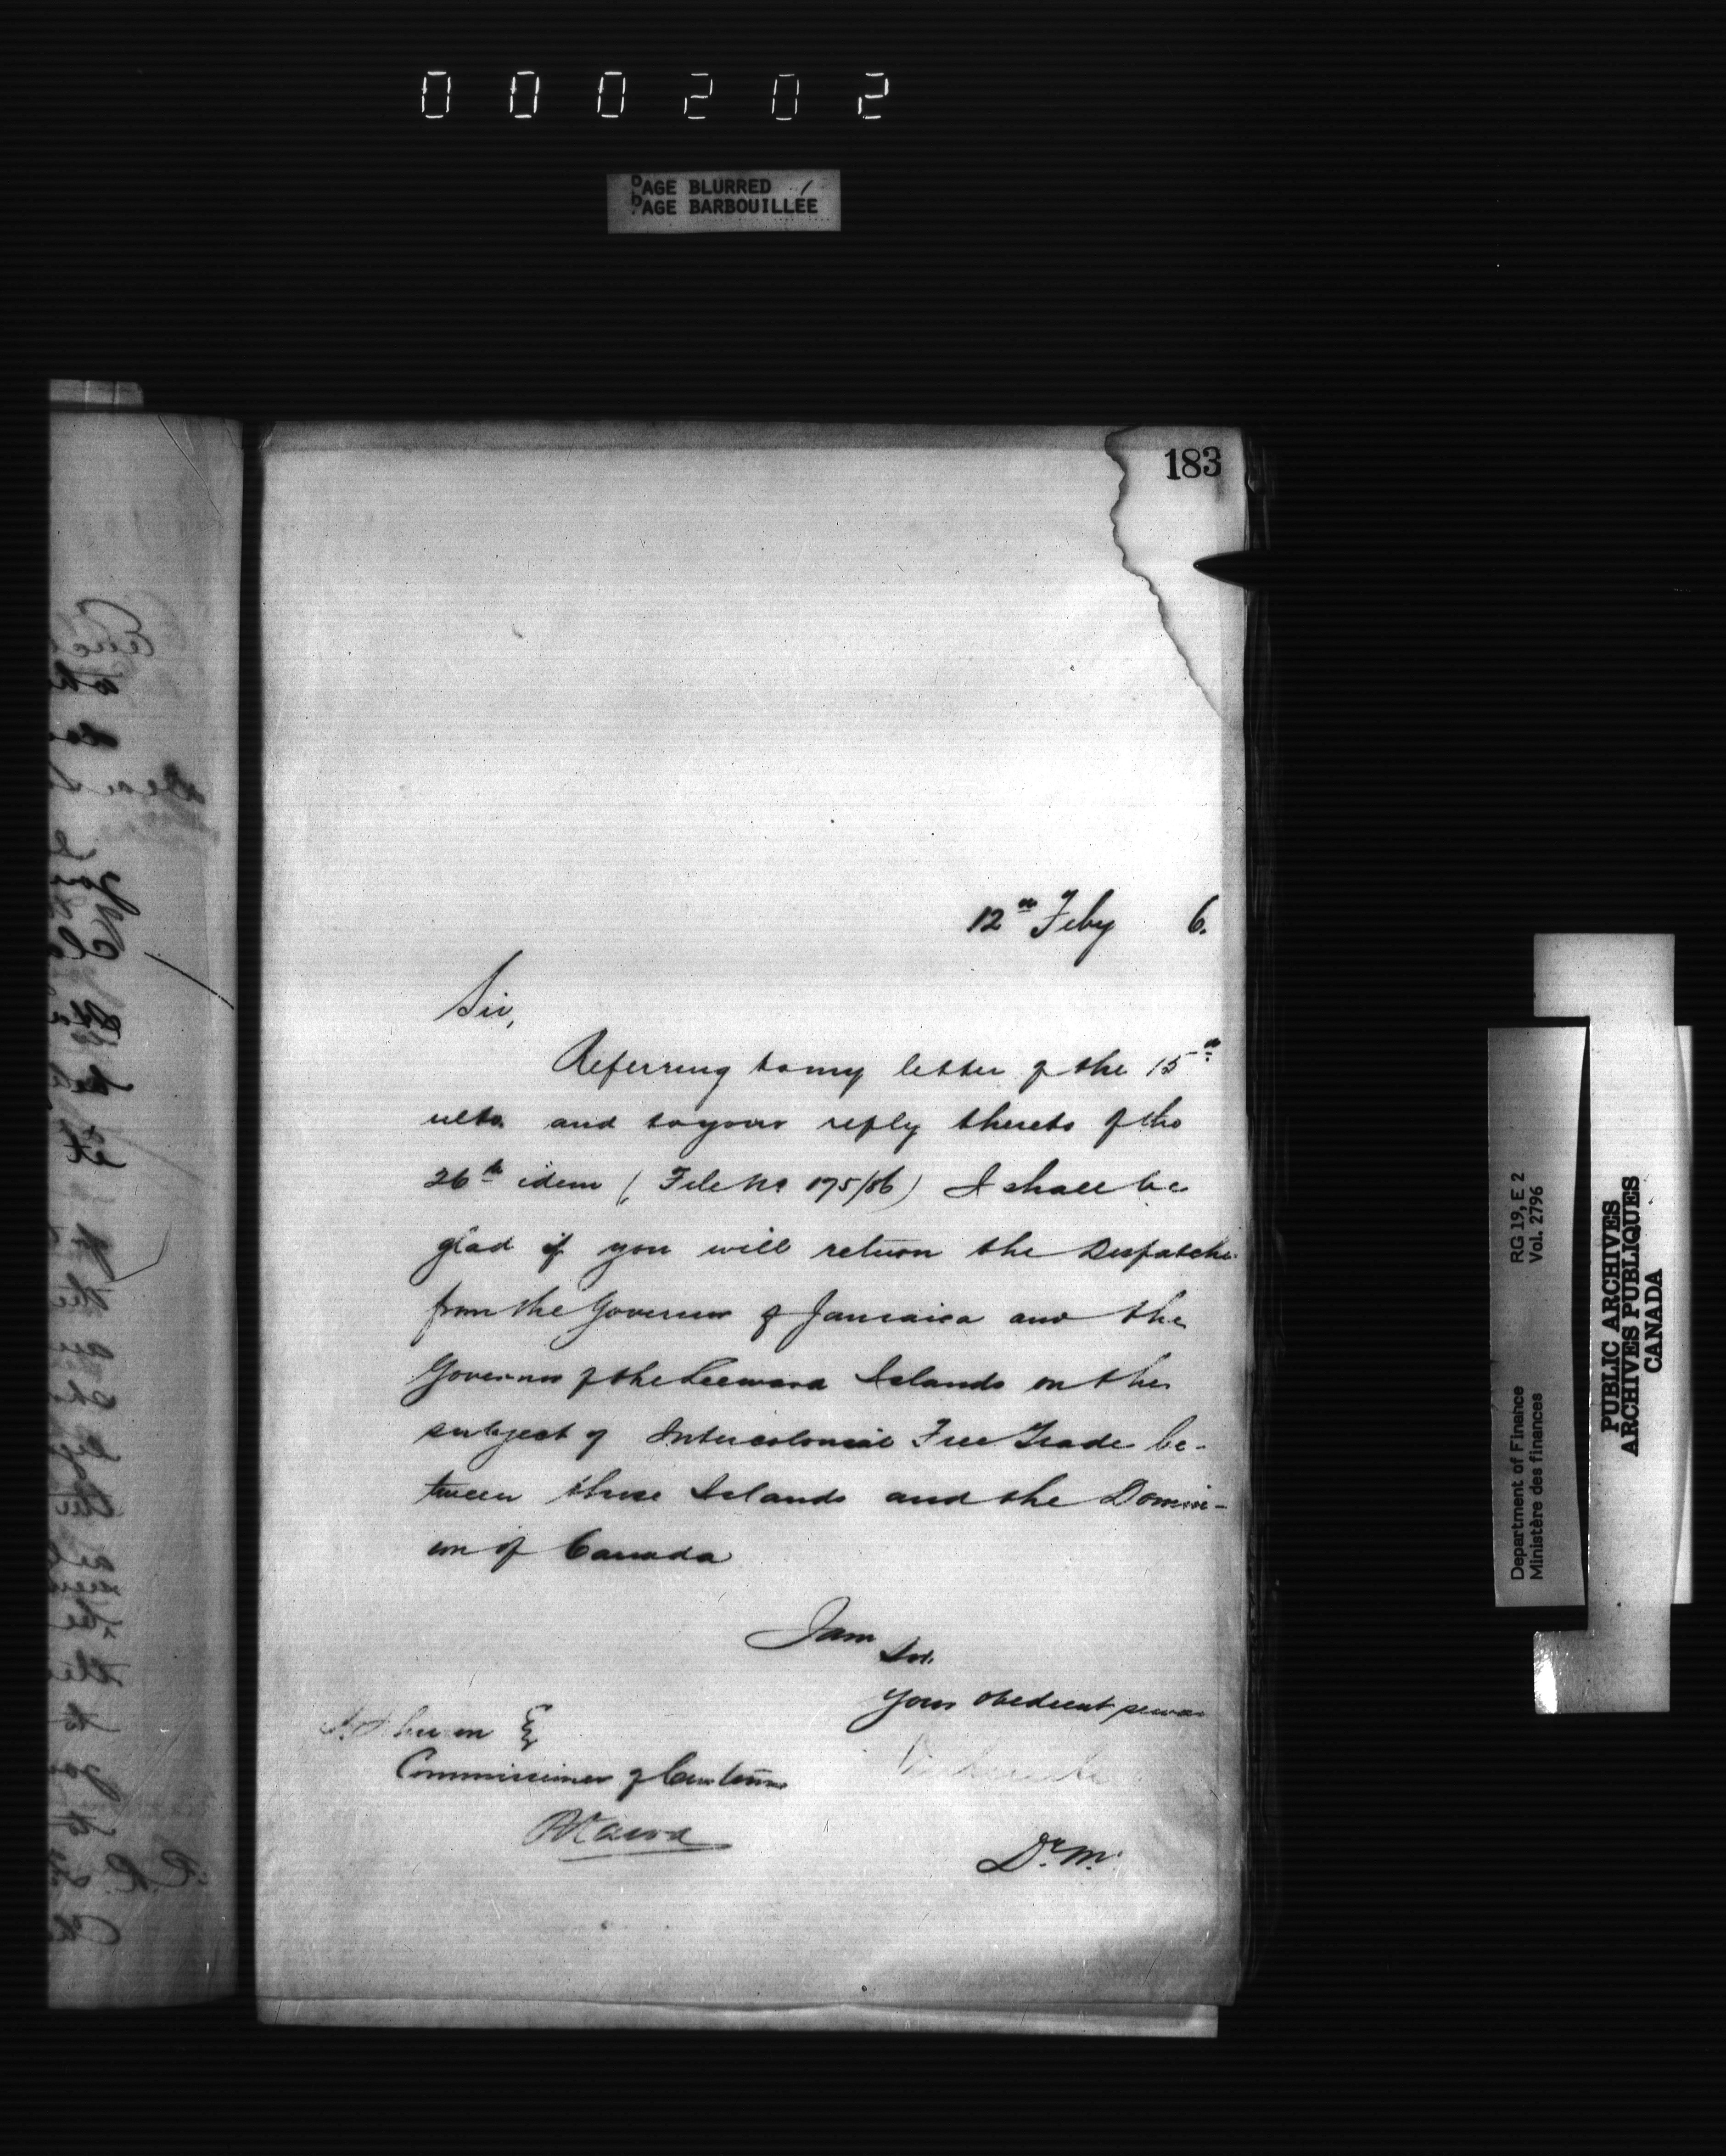 000202
PAGE BLURRED
PAGE BARBOUILLÉE
183
12th Feby 6.
Sir,
Referring to my letter of the 15th
ulto. and to your reply thereto of the
26th idem (File No 175/86) I shall be
glad if you will return the Despatches
from the Governor of Jamaica and the
Governor of the Leeward Islands on the
subject of Intercolonial Free Trade be-
tween those Islands and the Domini-
on of Canada
I am
Sir.
Your obedient servant
Esq
Commissioner of Customs
Ottawa
D. M.
Department of Finance RG 19, E 2
Ministère des finances Vol. 2796
PUBLIC ARCHIVES
ARCHIVES PUBLIQUES
CANADA